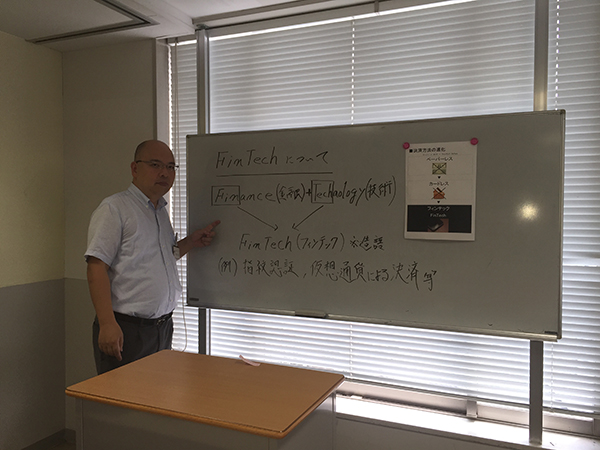 FinTechについて
Finance(金融)+Technology(技術)
FinTech(フィンテック) 造語
(例) 指紋認証, 仮想通貨による決済等
■決済方法の進化
ペーパーレス
カードレス
フィンテック
FinTech